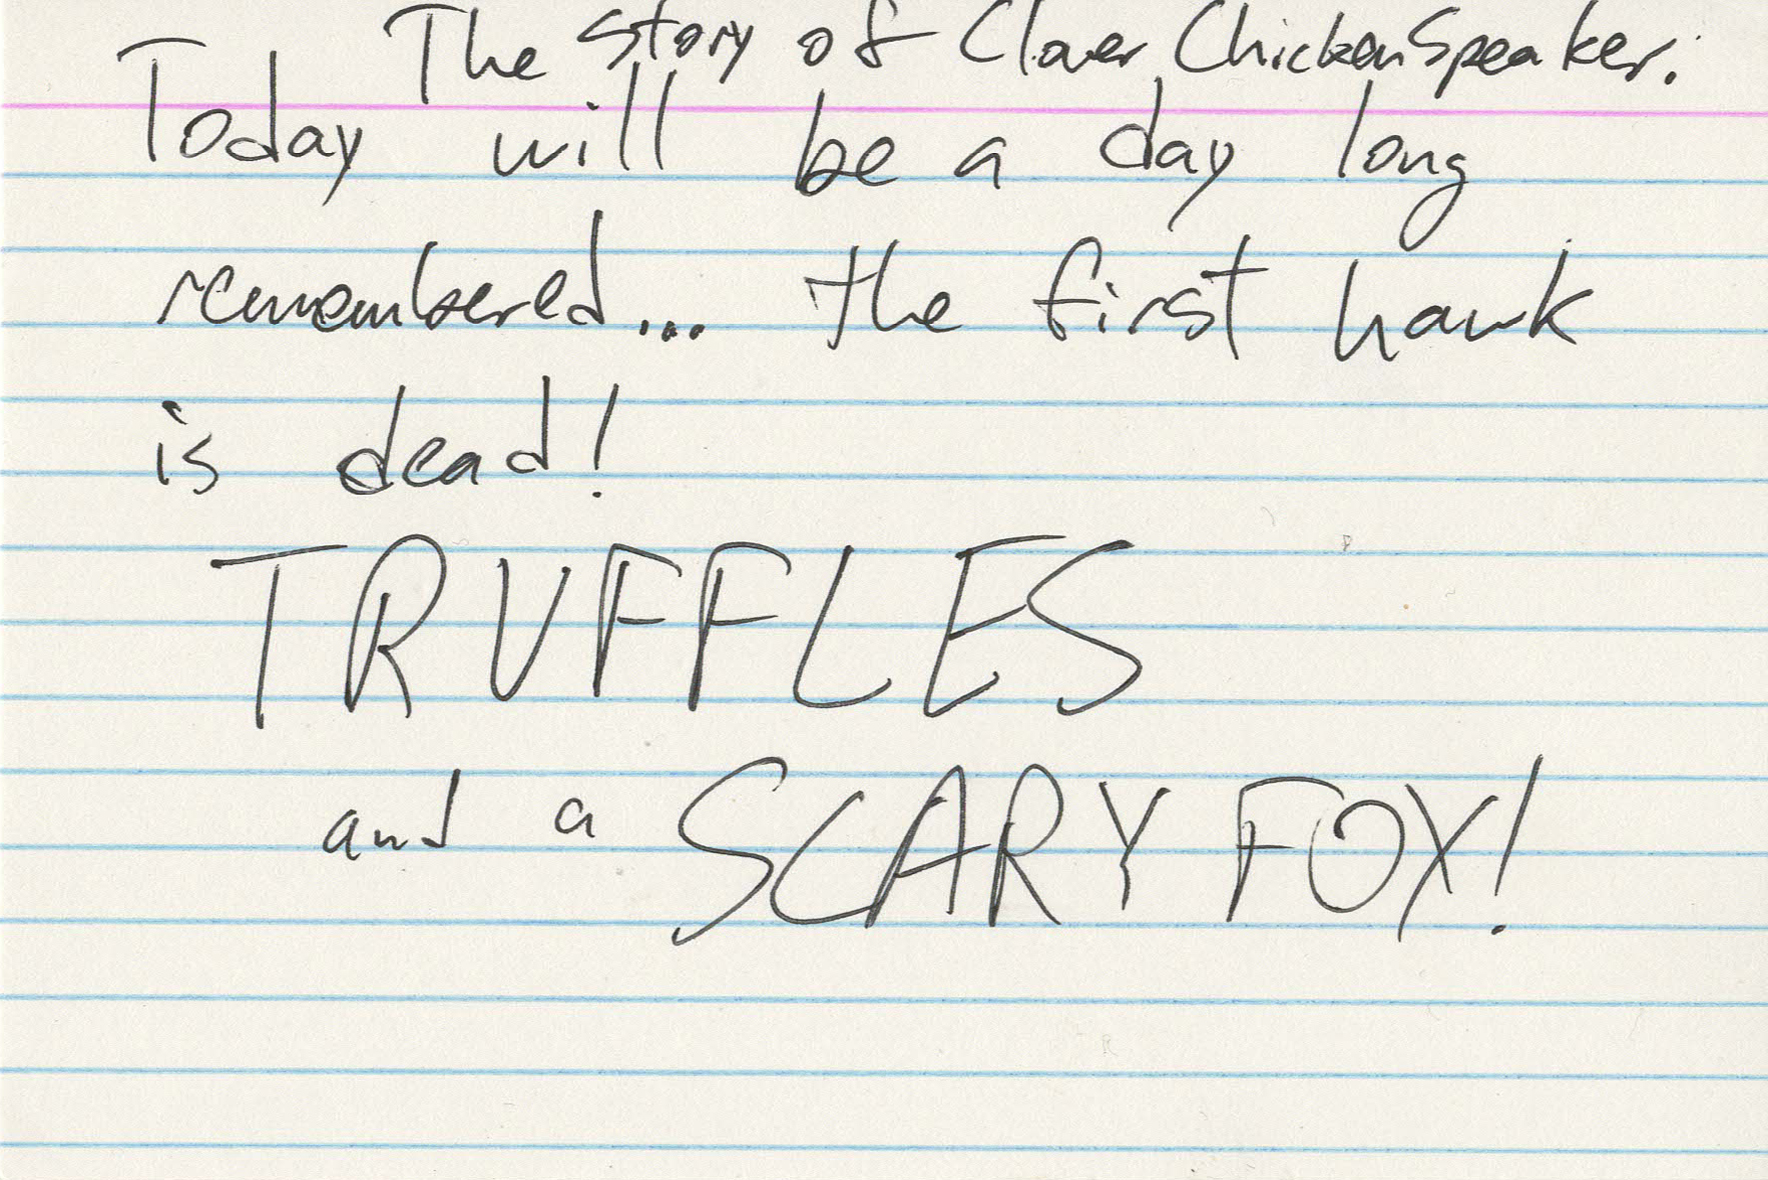 The Story of Clover ChickenSpeaker.
Today will be a day long
remembered... the first hawk
is dead!
TRUFFLES
and a SCARY FOX!